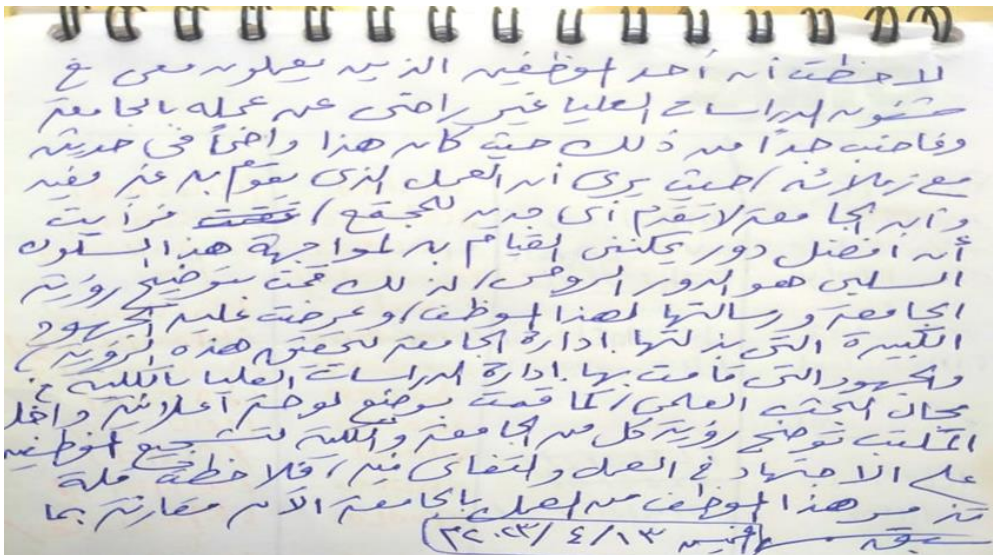 لاحظت أن أحد الموظفين الذين يعملون معى في
شئون الدراسات العليا غير راضى عن عمله بالجامعة
وغاضب جداً من ذلك حيث كان هذا واضحاً فى حديثه
مع زملائه / حيث يرى أن العمل الذى يقوم به غير مفيد
وأن الجامعة لا تقدم أى جديد للمجتمع / فرأيت
أن أفضل دور يمكننى القيام به لمواجهة هذا السلوك
السلبى هو الدور / لذلك قمت بتوضيح رؤية
الجامعة ورسالتها لهذا الموظف / وعرضت عليه الجهود
الكبيرة التى بذلتها إدارة الجامعة لتحقيق هذه الرؤية /
والجهود التى قامت بها إدارة الدراسات العليا بالكلية في
مجال البحث العلمى / كما قمت بوضع لوحة إعلانية داخل
المكتب توضح رؤية كل من الجامعة والكلية لتشجيع الموظفين
على الاجتهاد في العمل والتفانى فيه / فلاحظت قلة
تذمر هذا الموظف من العمل بالجامعة الآن مقارنة بما
سبق الخميس ١٣ / ٤ / ٢٠٢٣م